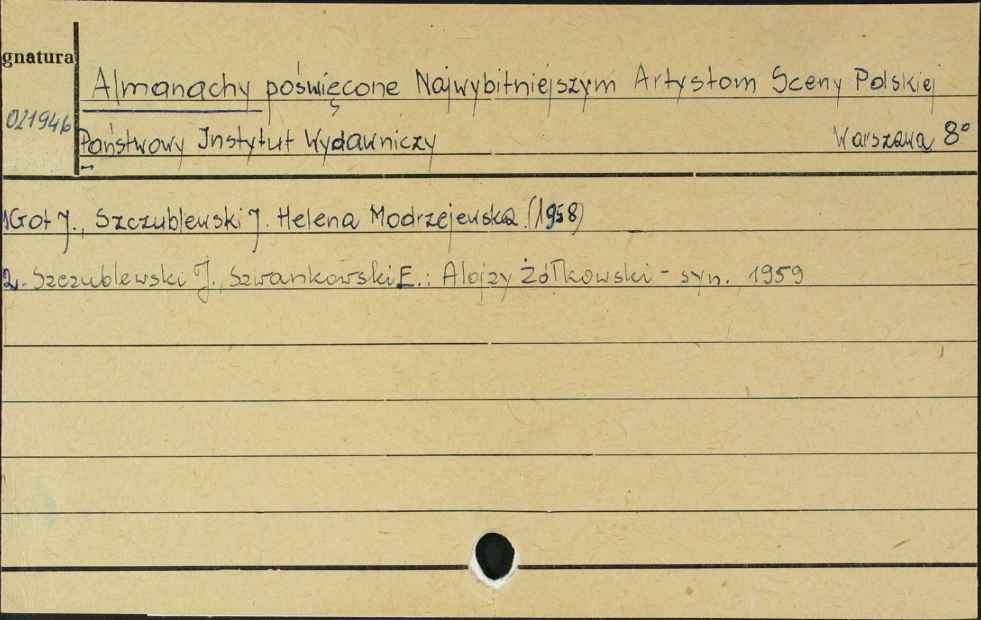 gnatura
Almanachy poświęcone Najwybitniejszym Artystom Sceny Polskiej
021946
Państwowy Instytut Wydawniczy Warszawa 8°
1Got J., Szczublewski J. Helena Modrzejewska (1958)
2. Szczublewski J., Szwankowski E.: Alojzy Żółkowski - syn. 1959